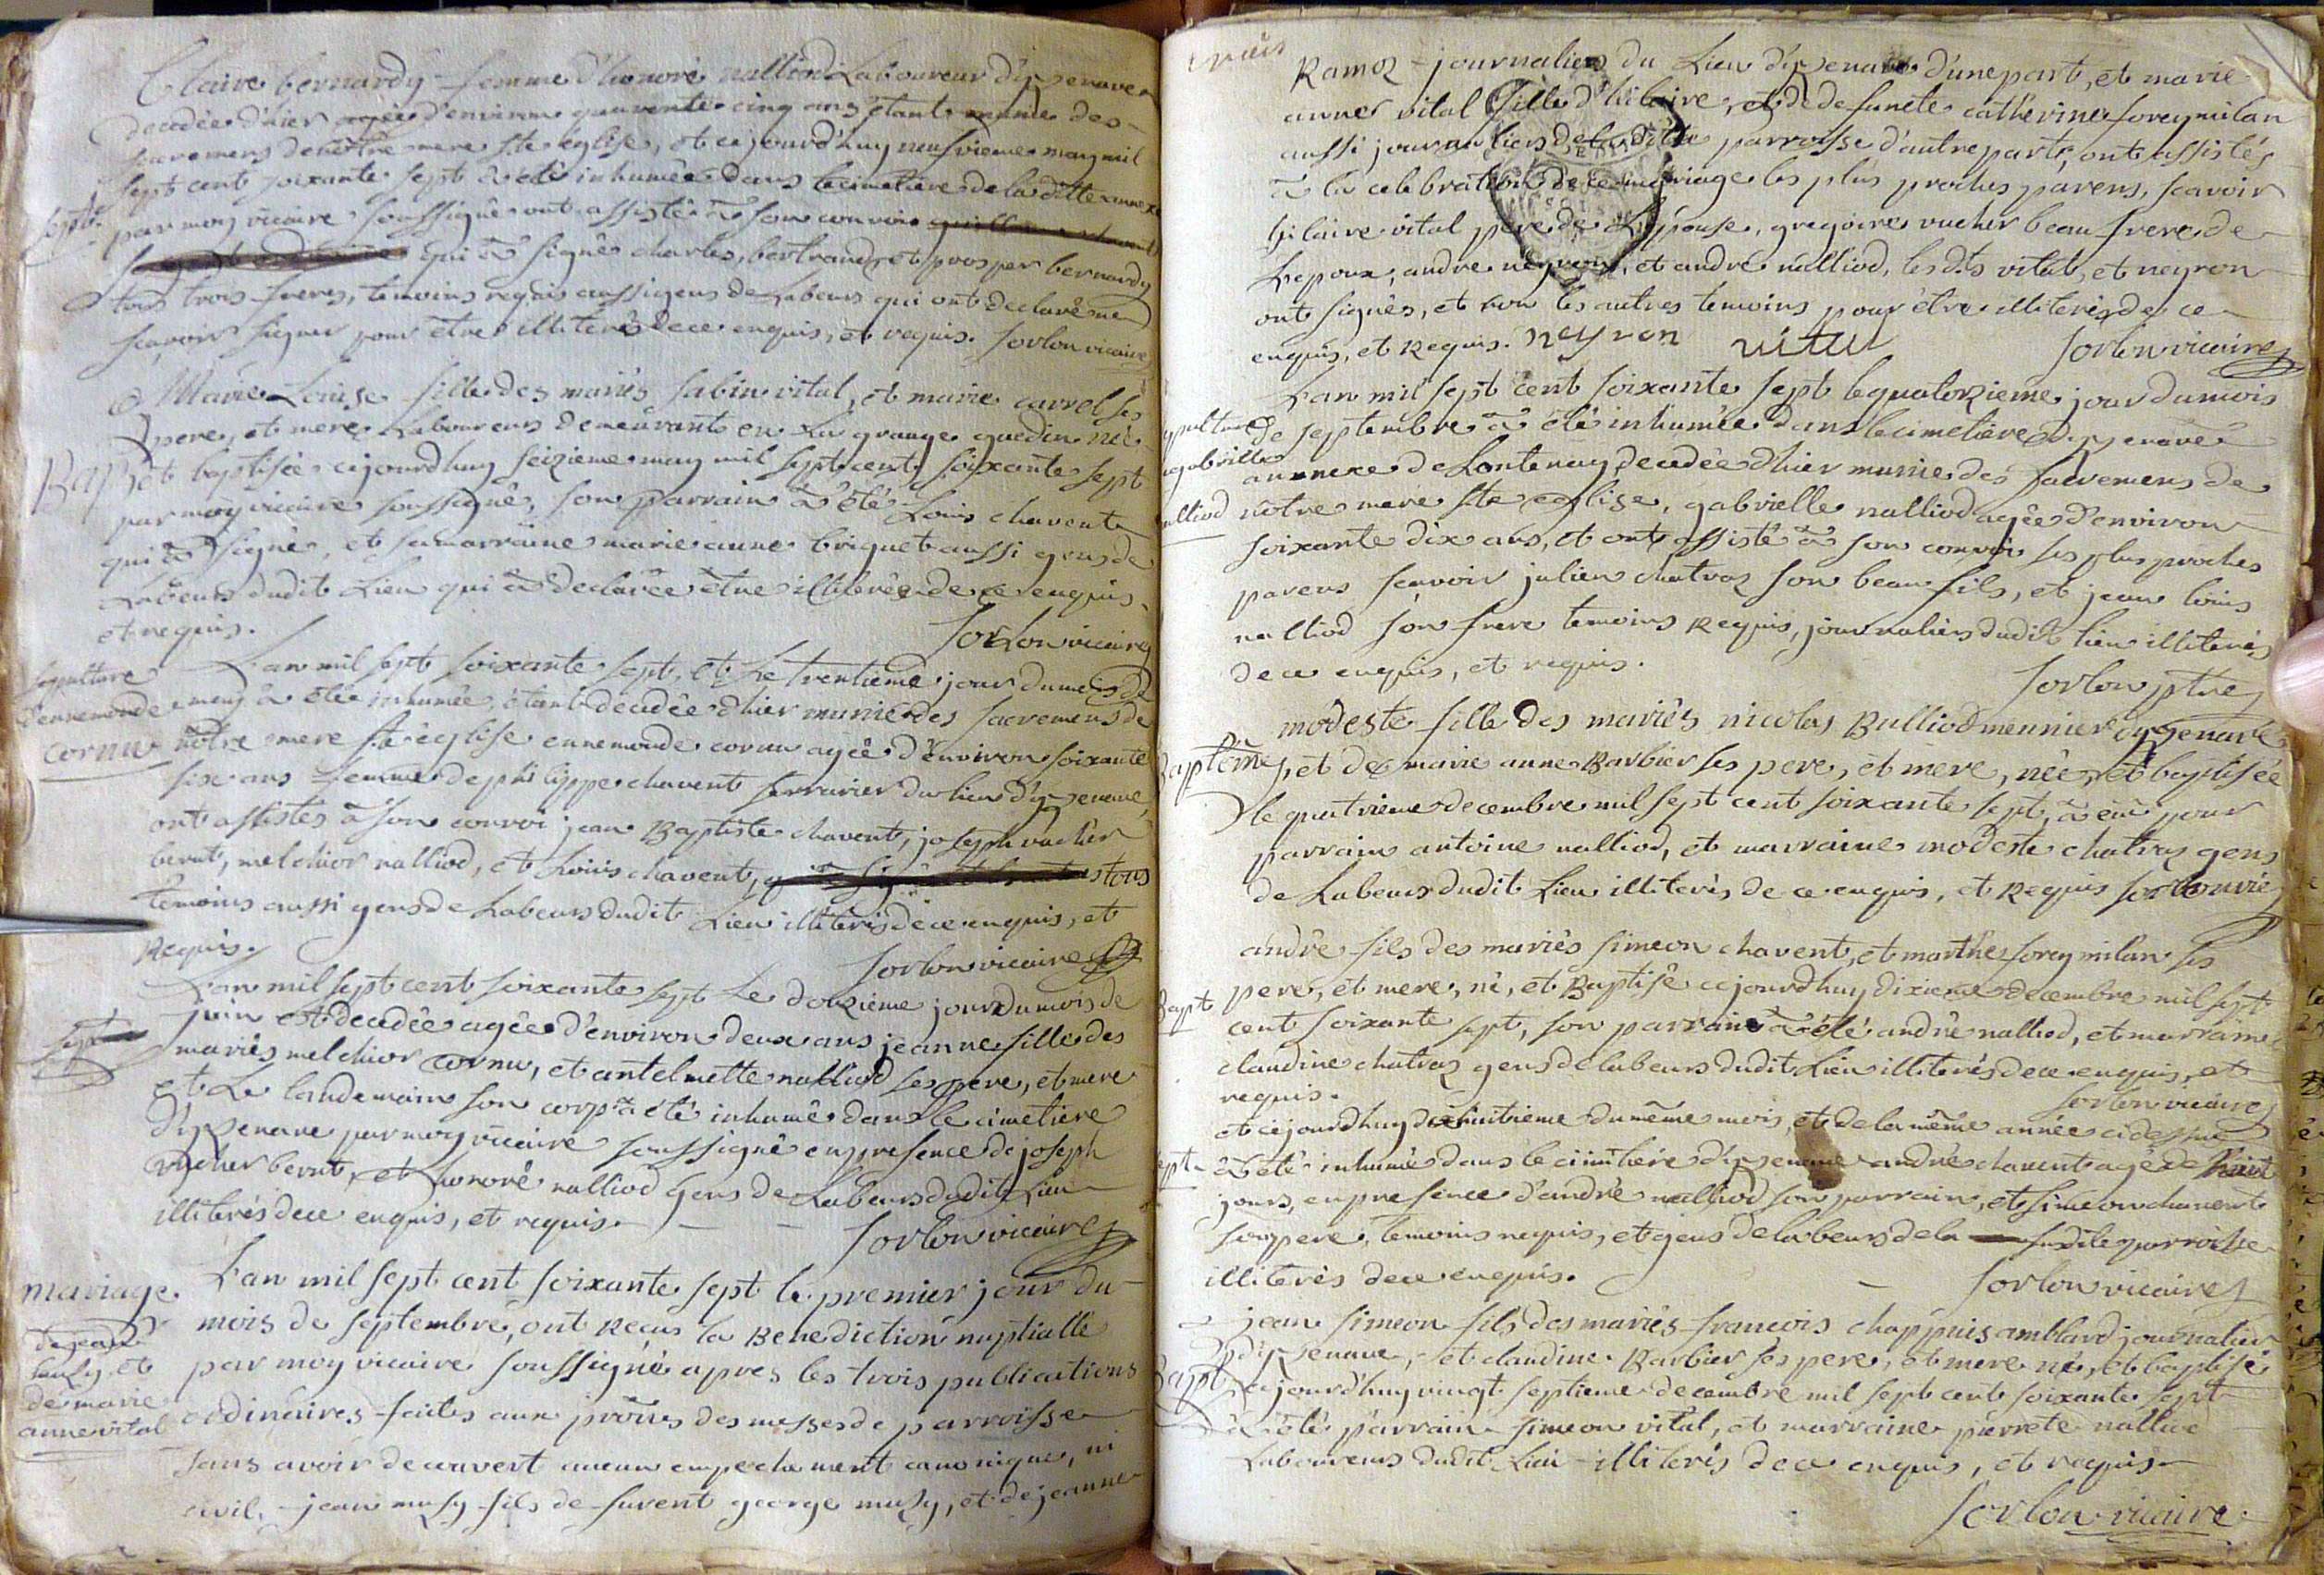 Claire bernardy femme d'honoré nalliod Laboureur d'izenave
decedée d'hier agée d'environ quarente cinq ans étant munie des
sacremens de nôtre mere ste église, et cejourd'huy neufvieme may mil
sept cent soixante sept à été inhumée dans le cimetiere de la ditte annexe
sept.
par moy vicaire soussigné ont assisté à son convoi
qui à signé charles, bertrand, et prosper bernardy
tous trois freres, temoins requis aussi gens de Labeurs qui ont declaré ne
sçavoir signer pour être illiterés de ce enquis, et requis. sorlon vicaire
Marie Louise fille des mariés sabin vital, et marie carrel ses
pere, et mere Laboureurs demeurants en La grange guedin née
Bapt
et baptisée cejourdhuy seizieme may mil sept cent soixante sept
par moy vicaire soussigné, son parrain à été Louis chavent
qui à signé, et sa marraine marie anne briquet aussi gens de
Labeurs dudit Lieu qui à declarée être illiterée de ce enquis,
et requis.
sorlon vicaire
sepulture
d'ennemonde
cornu
L'an mil sept soixante sept, et Le trentieme jour du mois de
may à étée inhumée, étant decedée d'hier munie des sacremens de
nôtre mere ste église ennemonde cornu agée d'environ soixante
six ans femme de philippe chavent serrurier du lieu d'izenave,
ont assistés à son convoi jean Baptiste chavent, joseph vucher
berut, melchior nalliod, et Louis chavent, tous
temoins aussi gens de Labeurs dudit Lieu illiterés de ce enquis, et
Requis.
sorlon vicaire
L'an mil sept cent soixante sept Le douzieme jour du mois de
sept
juin est decedée agée d'environ deux ans jeanne fille des
mariés melchior cornu, et antelmette nalliod ses pere, et mere
et Le landemain son corp à été inhumé dans le cimetiere
d'izenave par moy vicaire soussigné en presence de joseph
vucher berut, et honoré nalliod gens de Labeurs dudit Lieu
illiterés de ce enquis, et requis.
sorlon vicaire
mariage
de jean
muzy, et
de marie
anne vital
L'an mil sept cent soixante sept le premier jour du
mois de septembre, ont Reçus la Benediction nuptialle
par moy vicaire soussigné apres les trois publications
ordinaires faites aux prônes des messes de parroisse
sans avoir decouvert aucun empechement canonique, ni
civil, jean muzy fils de furent george muzy, et de jeanne
Ramoz journaliers du Lieu d'izenave d'une part, et marie
anne vital fille d'hilaire, et de defuncte catherine sorey milan
aussi journaliers de la ditte parroisse d'autre part, ont assistés
à la celebration de ce mariage les plus proches parens, scavoir
hilaire vital pere de L'epouse, gregoire vucher beau frere de
L'epoux, andre neyron, et andré nalliod, les dts vital, et neyron
ont signés, et non les autres temoins pour être illiterés de ce
enquis, et Requis. neyron vital
sorlon vicaire
L'an mil sept cent soixante sept le quatorzieme jour du mois
de septembre à été inhumée dans le cimetiere d'izenave
annexe de Lantenay decedée d'hier munie des sacremens de
nalliod
nôtre mere ste eglise, gabrielle nalliod agée d'environ
soixante dix ans, et ont assisté à son convoi les plus proches
parens scavoir julien chatraz son beau fils, et jean Louis
nalliod son frere temoins Requis, journaliers dudit lieu illiterés
de ce enquis, et requis.
sorlon ptre
modeste fille des mariés nicolas Bulliod mennier d'izenave
Baptême
, et de marie anne Barbier ses pere, et mere, née, et baptisée
le quatrieme decembre mil sept cent soixante sept, à eu pour
parrain antoine nalliod, et marraine modeste chatraz gens
de Labeurs dudit Lieu illiterés de ce enquis, et Requis sorlon vic
andré fils des mariés simeon chavent, et marthe sorey milan ses
Bapt
pere, et mere, né, et Baptisé cejourdhuy dixieme decembre mil sept
cent soixante sept, son parrain à été andré nalliod, et marraine
claudine chatraz gens de labeurs dudit Lieu illiterés de ce enquis, et
requis.
sorlon vicaire
et cejourdhuy dixhuitieme du même mois, et de la même année ci dessus
sept
à été inhumé dans le cimetiere d'izenave andré chavent agé de huit
jours, en presence d'andré nalliod son parrain, et simeon chavent
son pere, temoins requis, et gens de labeurs de la susdite parroisse
illiterés de ce enquis.
sorlon vicaire
jean simeon fils des mariés francois chappuis amblard journalier
d'izenave, et claudine Barbier ses pere, et mere né, et baptisé
Bapt
cejourd'huy vingt septieme decembre mil sept cent soixante sept
à été parrain simeon vital, et marraine pierrete nalliod
Laboureurs dudit Lieu illiterés de ce enquis, et requis
sorlon vicaire